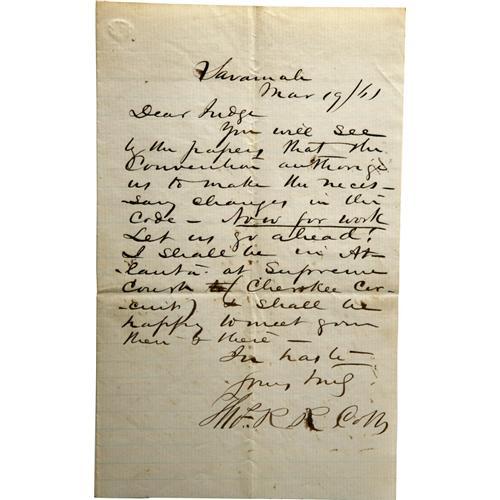 Savannah
Mar 19/61
Dear Judge
You will see
by the papers that the
Convention authorize
us to make the neces-
sary changes in the
Code – Now for work
Let us go ahead!
I shall be in At-
-lanta at Supreme
Court (Cherokee Cir-
-cuit) & I shall be
happy to meet you
then & there –
In haste
Yours truly
Tho. R R Cobb